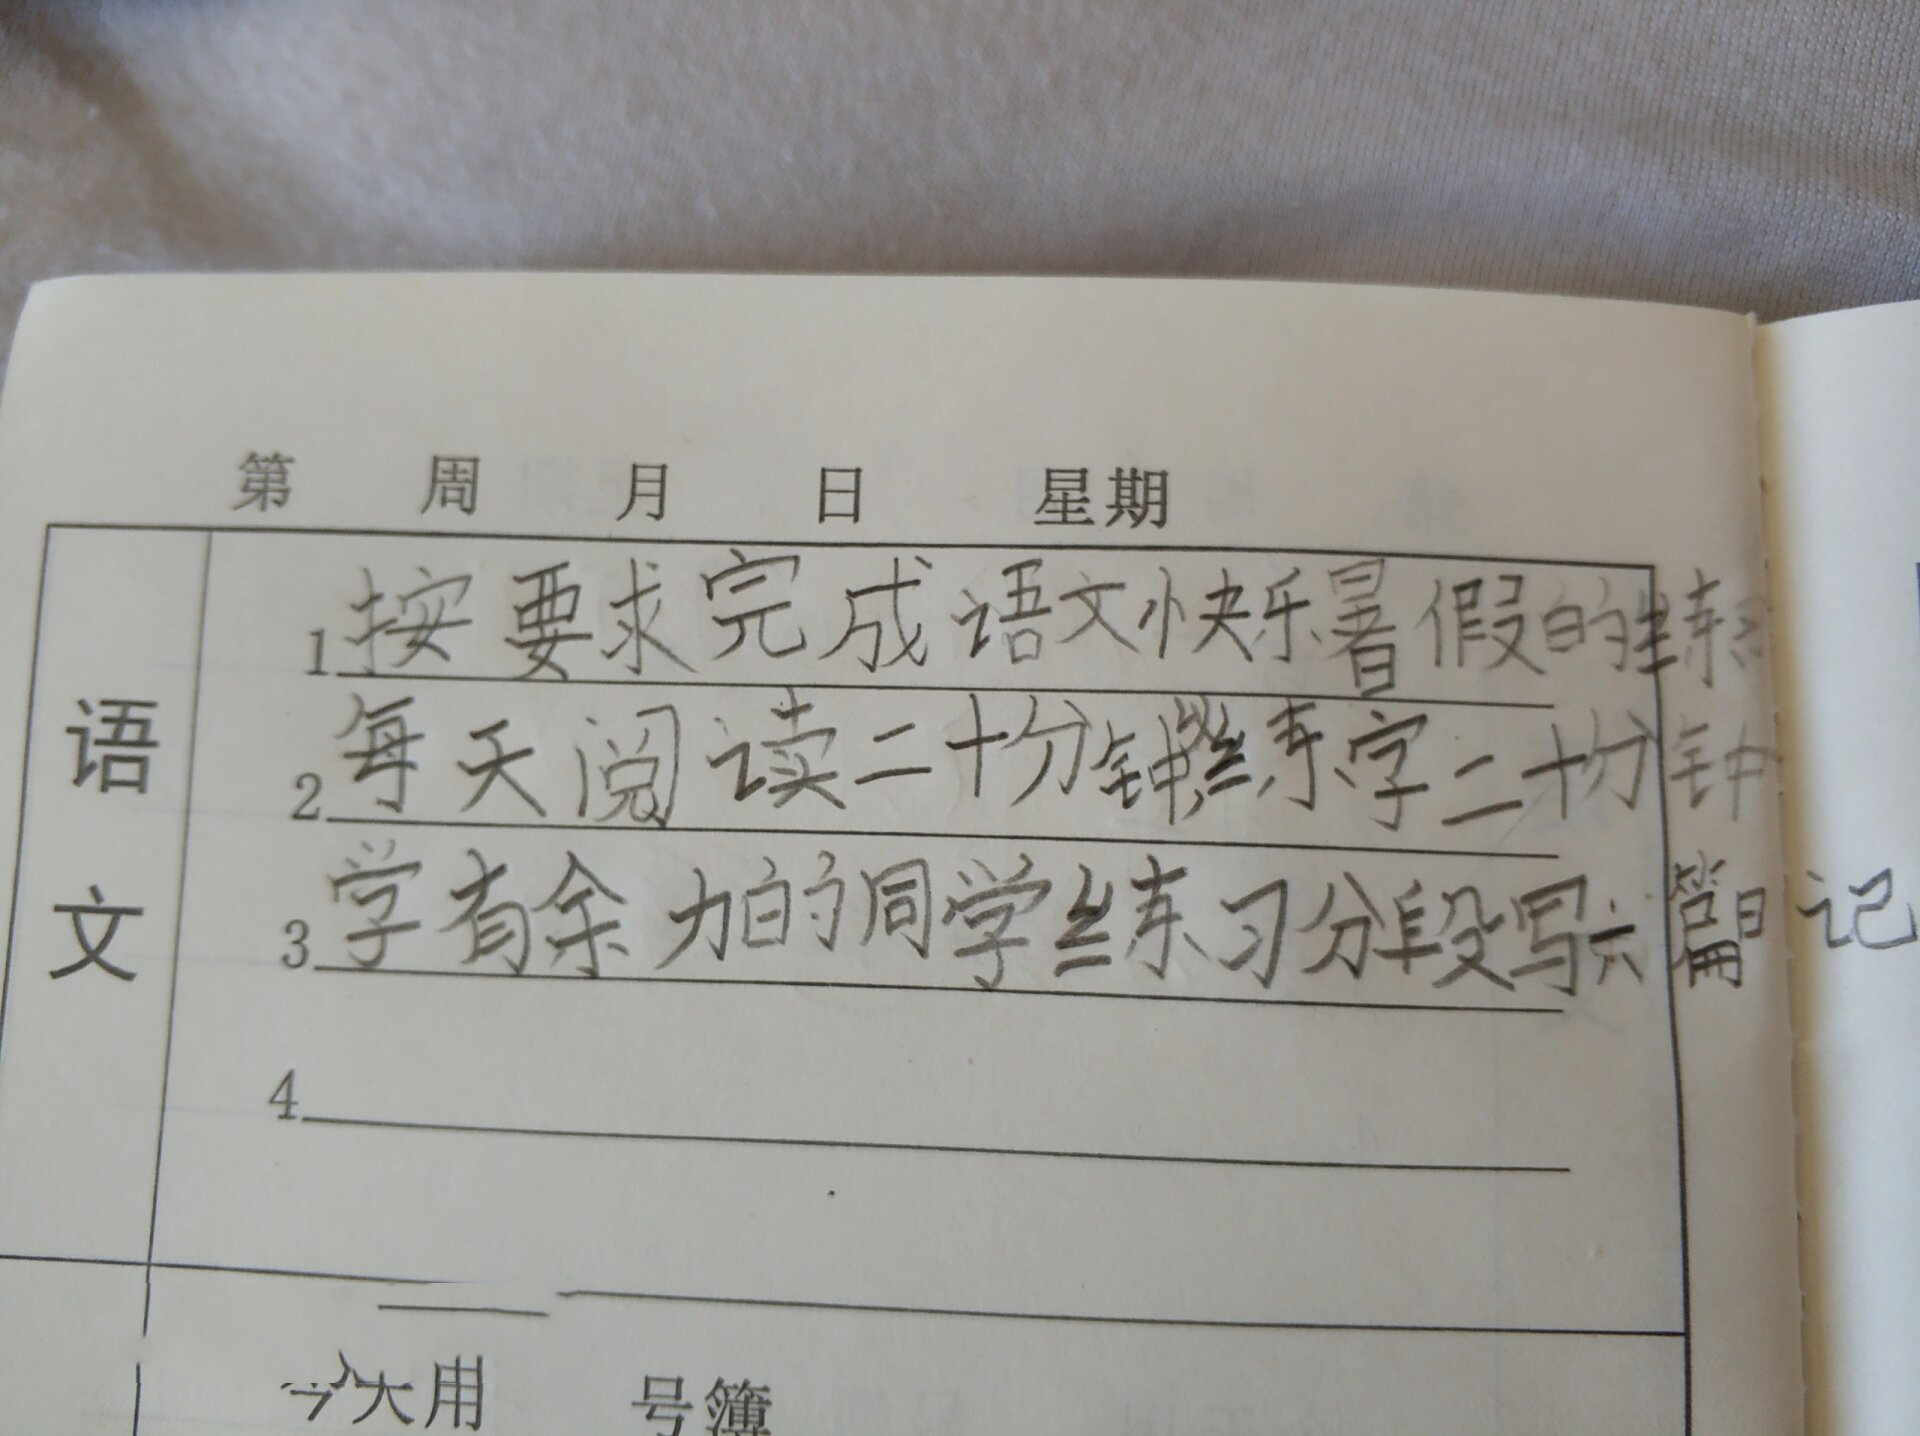 第 周 月 日 星期
语文
1按要求完成语文快乐暑假的练
2每天阅读二十分钟练字二十分钟
3学有余力的同学练习分段写六篇日记
4
今天用 号簿